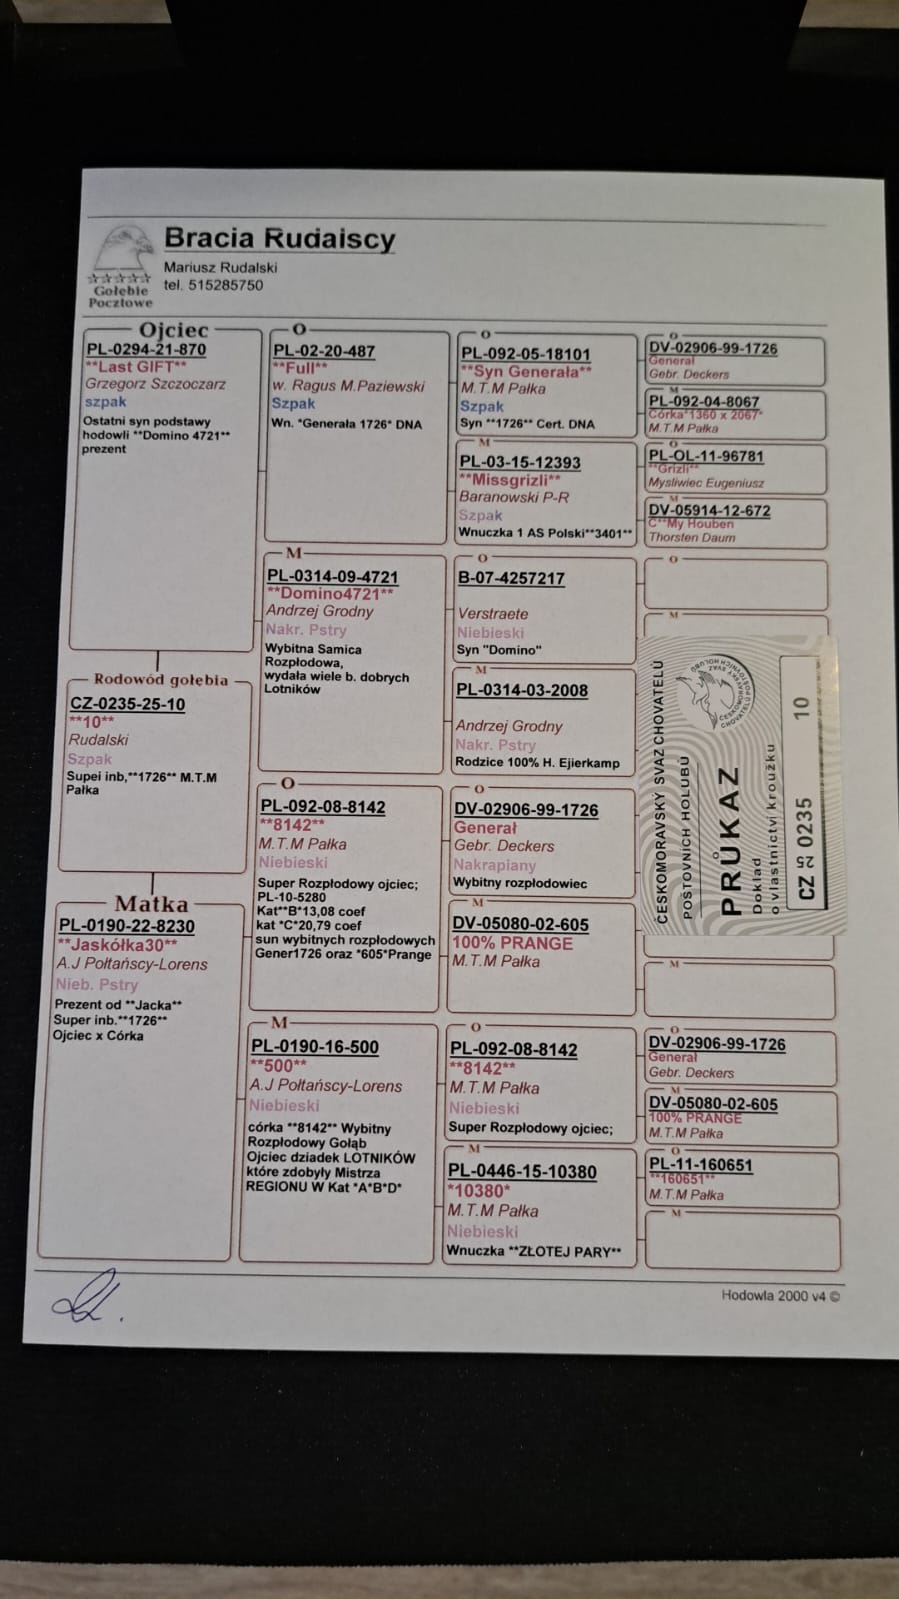 Bracia Rudaiscy
Mariusz Rudalski
tel. 515285750
Gołębie
Pocztowe
Ojciec
PL-0294-21-870
**Last GIFT**
Grzegorz Szczoczarz
szpak
Ostatni syn podstawy
hodowli **Domino 4721**
prezent
Rodowód gołębia
CZ-0235-25-10
**10**
Rudalski
Szpak
Supei inb,**1726** M.T.M
Pałka
Matka
PL-0190-22-8230
**Jaskółka30**
A.J Połtańscy-Lorens
Nieb. Pstry
Prezent od **Jacka**
Super inb.**1726**
Ojciec x Córka
O
PL-02-20-487
**Full**
w. Ragus M.Paziewski
Szpak
Wn. *Generała 1726* DNA
M
PL-0314-09-4721
**Domino4721**
Andrzej Grodny
Nakr. Pstry
Wybitna Samica
Rozpłodowa,
wydała wiele b. dobrych
Lotników
O
PL-092-08-8142
**8142**
M.T.M Pałka
Niebieski
Super Rozpłodowy ojciec;
PL-10-5280
Kat**B*13,08 coef
kat *C*20,79 coef
sun wybitnych rozpłodowych
Gener1726 oraz *605*Prange
M
PL-0190-16-500
**500**
A.J Połtańscy-Lorens
Niebieski
córka **8142** Wybitny
Rozpłodowy Gołąb
Ojciec dziadek LOTNIKÓW
które zdobyły Mistrza
REGIONU W Kat *A*B*D*
O
PL-092-05-18101
**Syn Generała**
M.T.M Pałka
Szpak
Syn **1726** Cert. DNA
M
PL-03-15-12393
**Missgrizli**
Baranowski P-R
Szpak
Wnuczka 1 AS Polski**3401**
O
B-07-4257217
Verstraete
Niebieski
Syn "Domino"
M
PL-0314-03-2008
Andrzej Grodny
Nakr. Pstry
Rodzice 100% H. Ejierkamp
O
DV-02906-99-1726
Generał
Gebr. Deckers
Nakrapiany
Wybitny rozpłodowiec
M
DV-05080-02-605
100% PRANGE
M.T.M Pałka
O
PL-092-08-8142
**8142**
M.T.M Pałka
Niebieski
Super Rozpłodowy ojciec;
M
PL-0446-15-10380
*10380*
M.T.M Pałka
Niebieski
Wnuczka **ZŁOTEJ PARY**
O
DV-02906-99-1726
Generał
Gebr. Deckers
M
PL-092-04-8067
Córka*1360 x 2067*
M.T.M Pałka
O
PL-OL-11-96781
**Grizli**
Mysliwiec Eugeniusz
M
DV-05914-12-672
C**My Houben
Thorsten Daum
O
M
ČESKOMORAVSKÝ SVAZ CHOVATELŮ
POŠTOVNÍCH HOLUBŮ
PRŮKAZ
Doklad
o vlastnictví kroužku
CZ 25 0235 10
M
O
DV-02906-99-1726
Generał
Gebr. Deckers
M
DV-05080-02-605
100% PRANGE
M.T.M Pałka
O
PL-11-160651
**160651**
M.T.M Pałka
M
Hodowla 2000 v4 ©